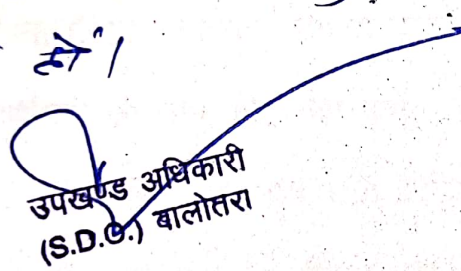 हो"।
उपखण्ड अधिकारी
(S.D.O.) बालोतरा